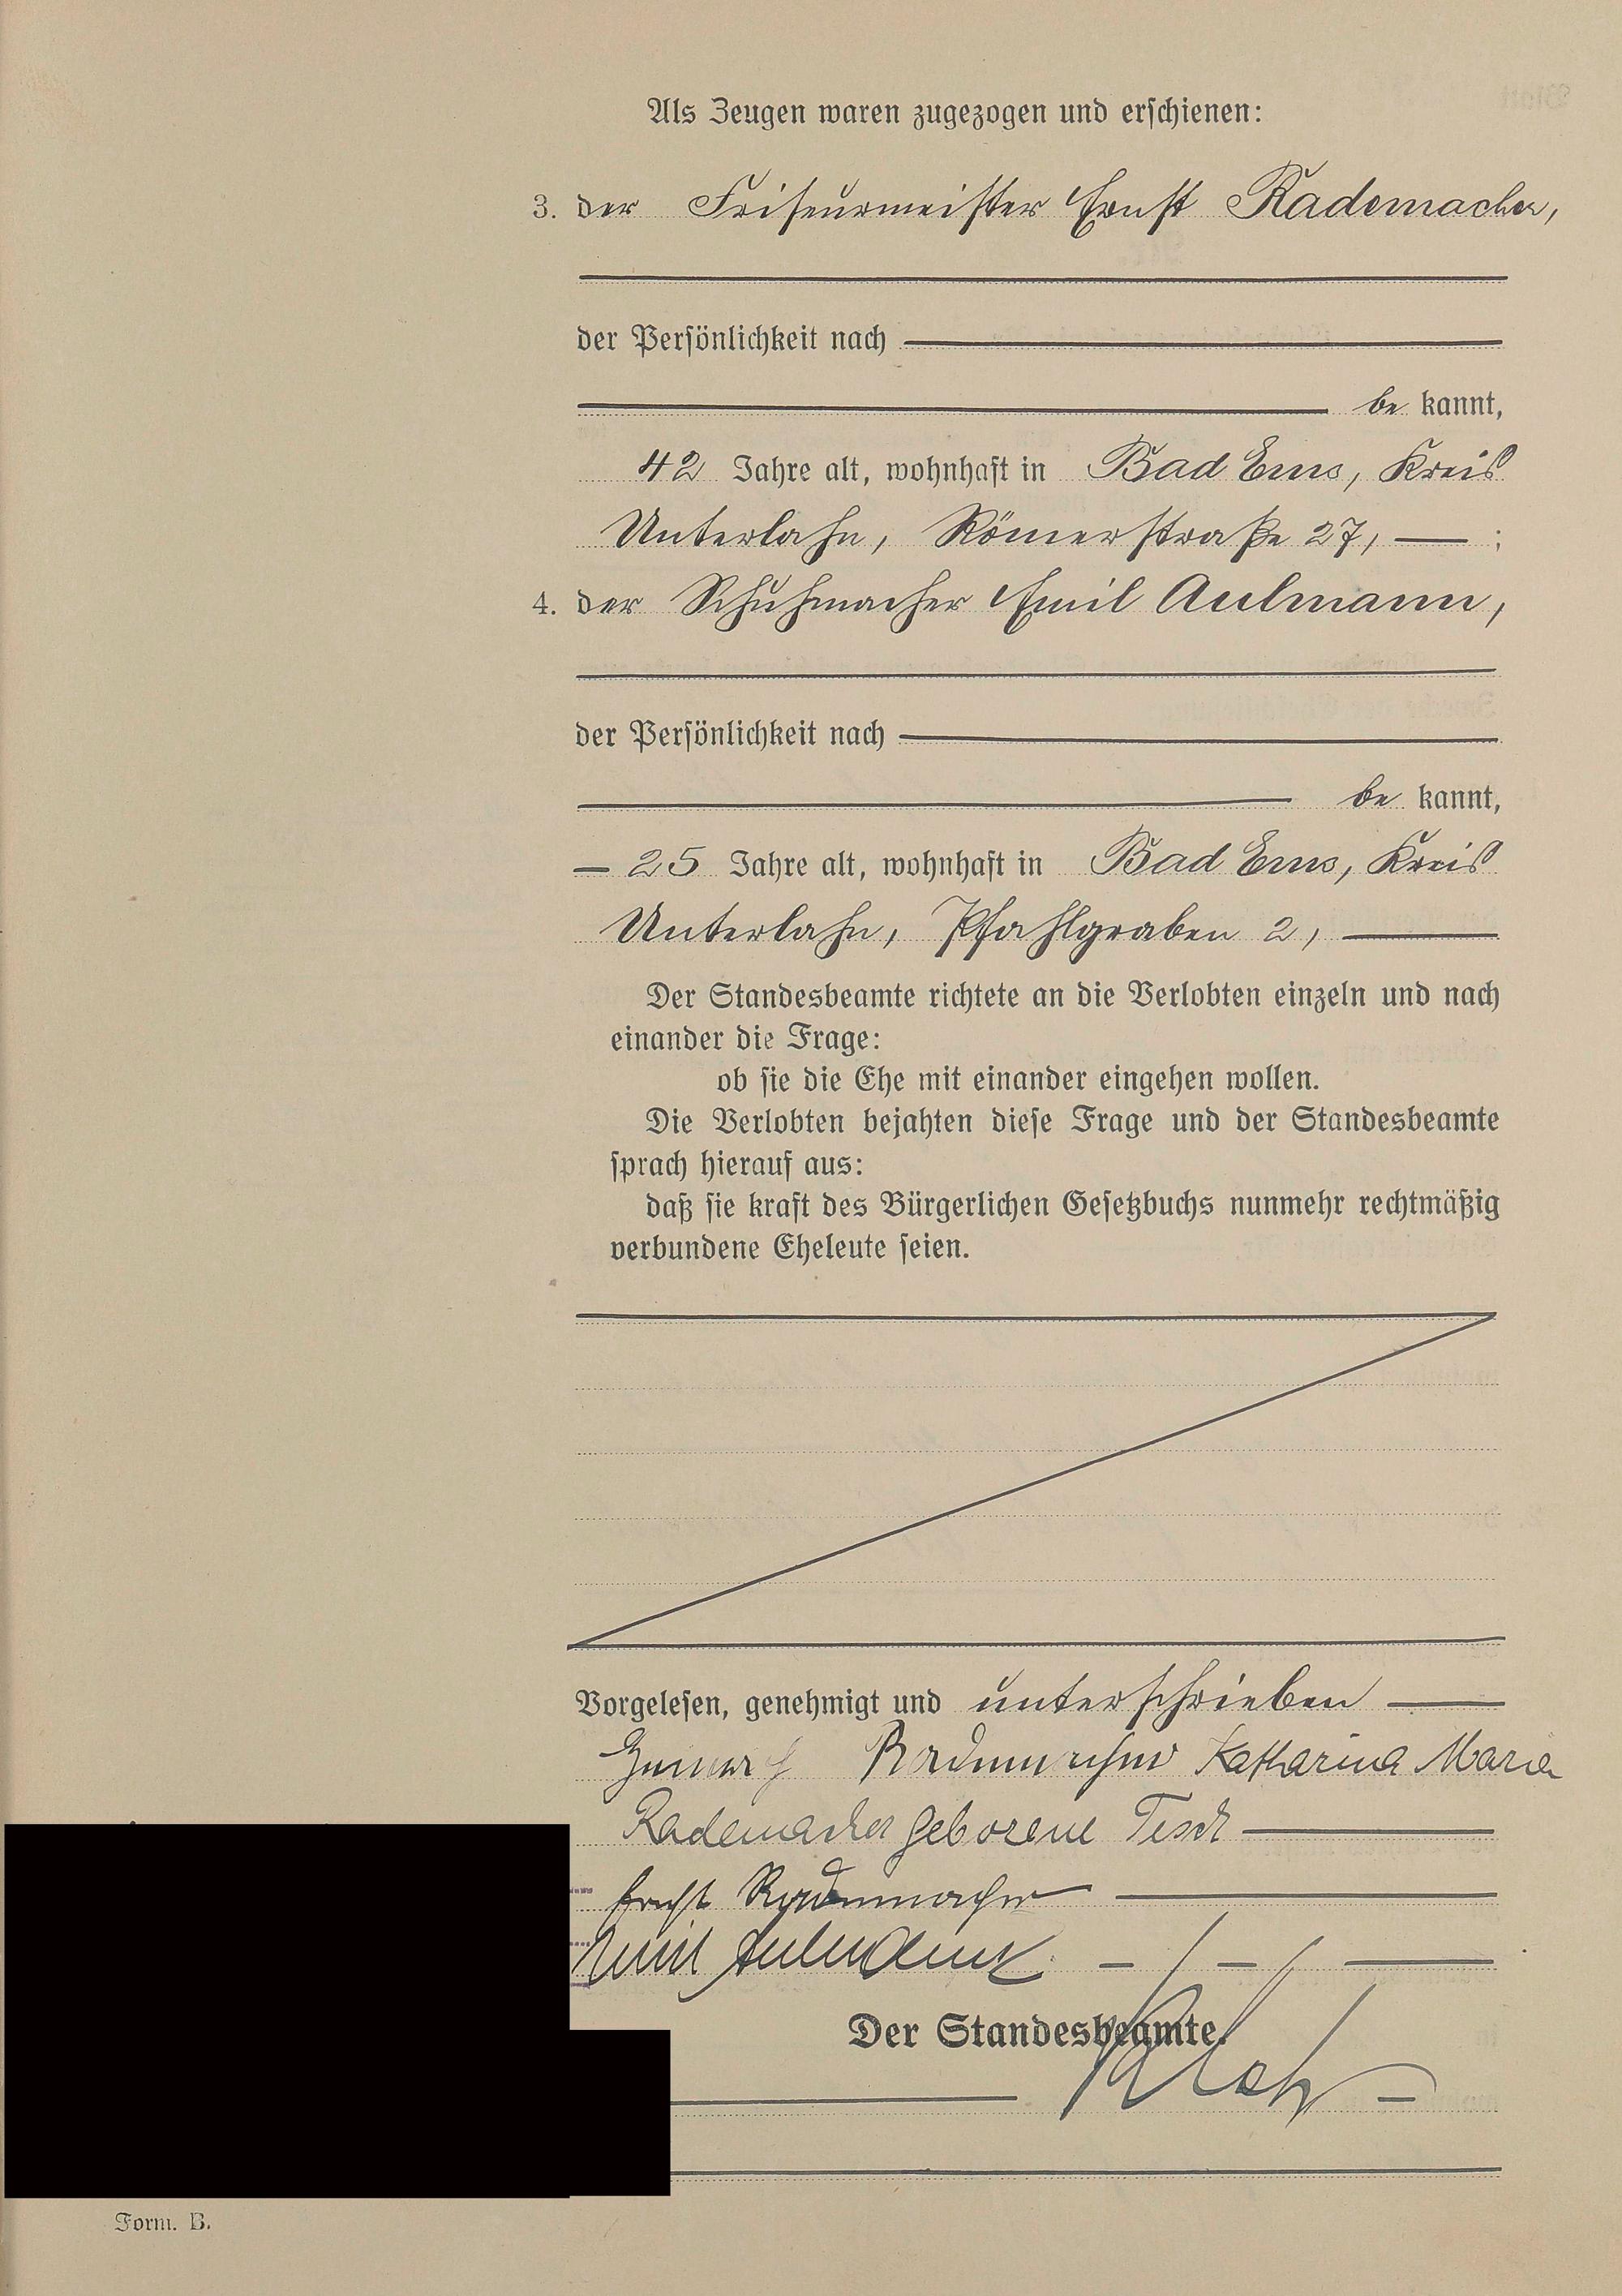 Als Zeugen waren zugezogen und erschienen:
3. der Friseurmeister Ernst Rademacher,
der Persönlichkeit nach
be kannt,
42 Jahre alt, wohnhaft in Bad Ems, Kreis
Unterlahn, Römerstraße 27, — ;
4. der Schuhmacher Emil Aulmann,
der Persönlichkeit nach
be kannt,
— 25 Jahre alt, wohnhaft in Bad Ems, Kreis
Unterlahn, Pfahlgraben 2, —
Der Standesbeamte richtete an die Verlobten einzeln und nach
einander die Frage:
ob sie die Ehe mit einander eingehen wollen.
Die Verlobten bejahten diese Frage und der Standesbeamte
sprach hierauf aus:
daß sie kraft des Bürgerlichen Gesetzbuchs nunmehr rechtmäßig
verbundene Eheleute seien.
Vorgelesen, genehmigt und unterschrieben —
Rademacher Katharina Maria
Rademacher geborene Tesch —
Ernst Rademacher —
Emil Aulmann. — — —
Der Standesbeamte.
Form. B.